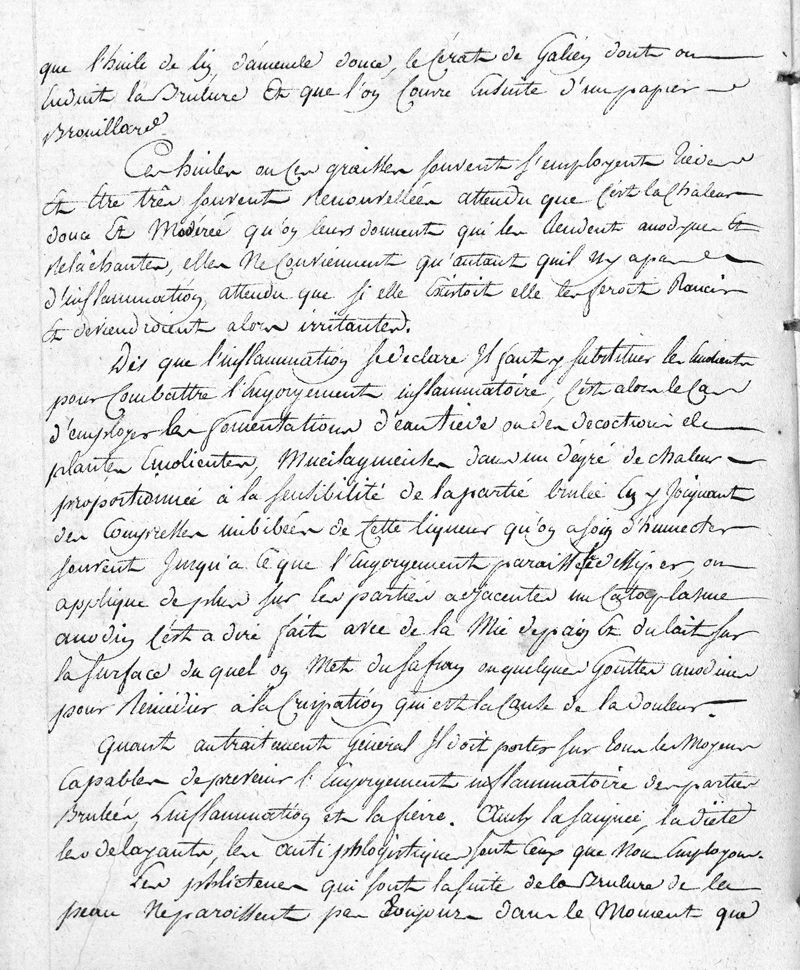 que l'huile de lin, d'amende douce, le Cérat de Galien dont on
Enduit la Brulure Et que l'on Couvre Ensuite d'un papier
Brouillard.
Ces huiles ou Ces graisses souvent s'employent tiedes
Et Etre très souvent Renouvellées attendu que C'est la Chaleur
douce Et Modéreé qu'on leurs donnent qui les Rendent anodynes Et
Relâchantes, elles Ne Conviennent qu'autant qu'il n'y a pas
d'inflammation, attendu que si elle Existoit elle les feroit Rancir
Et deviendroient alors irritantes.
Dès que l'inflammation se declare Il faut y substituer les Emolients
pour Combattre l'Engorgement inflammatoire, C'est alors le Cas
d'employer les fomentations d'eau tiede ou des decoctions de
plantes Emolientes, Mucilagineuses dans un dégré de chaleur
proportionnée à la sensibilité de la partié brulée En y Joignant
des Compresses imbibées de Cette liqueur qu'on a soin d'humecter
souvent Jusqu'a Ce que l'Engorgement paraisse se dissiper, on
applique de plus sur les parties adjacentes un Cataplasme
anodin C'est a dire fait avec de la Mie de pain Et du lait sur
la surface du quel on Met du safran ou quelques Gouttes anodines
pour Remédier à la Crispation qui est la Cause de la douleur.
Quant au traitement Général Il doit porter sur tous les Moyens
Capables de prevenir l'Engorgement inflammatoire des parties
Brulées, L'inflammation et la fievre. Ainsy la saignée, la diète
les delayants, les antiphlogistiques sont Ceux que Nous Employons.
Les phlictenes qui sont la suite de la Brulure de la
peau Ne paroissent pas toujours dans le Moment que